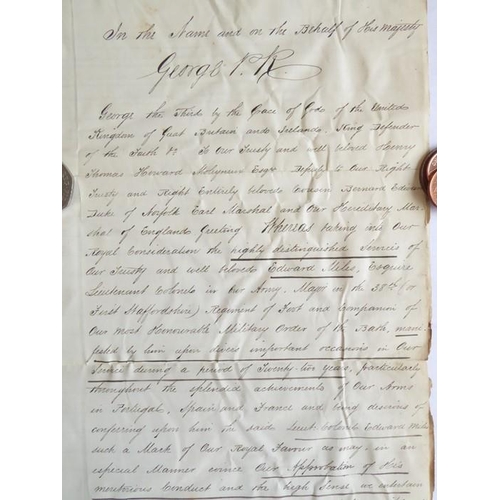 In the Name and on the Behalf of His Majesty
George P. R.
George the Third by the Grace of God of the United
Kingdom of Great Britain and Ireland, King Defender
of the Faith &c To Our Trusty and well beloved Henry
Thomas Howard Molyneux Esqre Deputy to Our Right
Trusty and Right Entirely beloved Cousin Bernard Edward
Duke of Norfolk Earl Marshal and Our Hereditary Mar
shal of England Greeting Whereas taking into Our
Royal Consideration the highly distinguished Services of
Our Trusty and well beloved Edward Miles, Esquire
Lieutenant Colonel in Our Army, Major in the 38th (or
First Staffordshire) Regiment of Foot and Companion of
Our most Honourable Military Order of the Bath, mani
fested by him upon divers important occasions in Our
Service during a period of Twenty two years, particularly
throughout the splendid achievements of Our Arms
in Portugal, Spain and France and being desirous of
conferring upon him the said Lieut Colonel Edward Miles
such a Mark of Our Royal Favour as may in an
especial Manner evince Our Approbation of His
meritorious Conduct and the high Sense we entertain